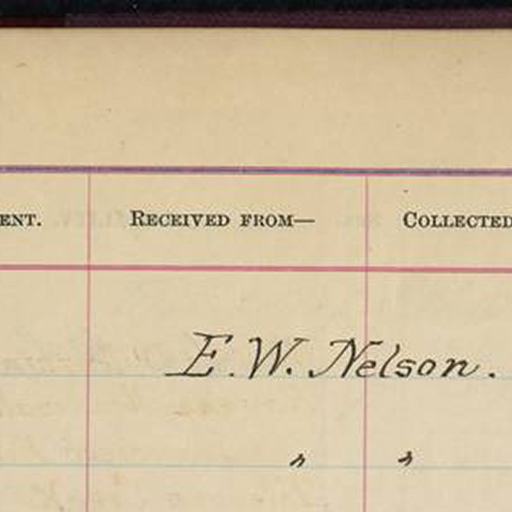 ENT. RECEIVED FROM— COLLECTED
E. W. Nelson.
" "